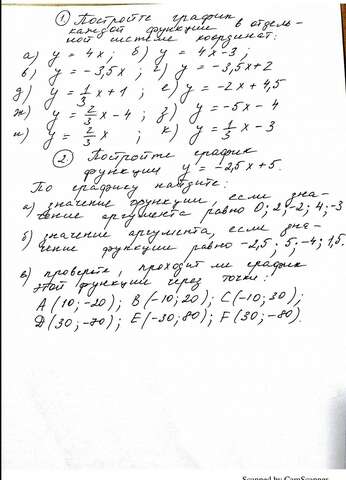 ① Постройте график
каждой функции в отдель-
ной системе координат:
а) y = 4x; б) y = 4x-3;
в) y = -3,5x; г) y = -3,5x+2
д) y = 1/3 x + 1; е) y = -2x + 4,5
ж) y = 2/3 x - 4; з) y = -5x - 4
и) y = 2/3 x; к) y = 1/3 x - 3
② Постройте график
функции y = -2,5x + 5.
По графику найдите:
а) значение функции, если зна-
чение аргумента равно 0; 2; -2; 4; -3
б) значение аргумента, если зна-
чение функции равно -2,5; 5; -4; 1,5.
в) проверьте, проходит ли график
этой функции через точки:
A(10; -20); B(-10; 20); C(-10; 30);
D(30; -70); E(-30; 80); F(30; -80).
Scanned by CamScanner